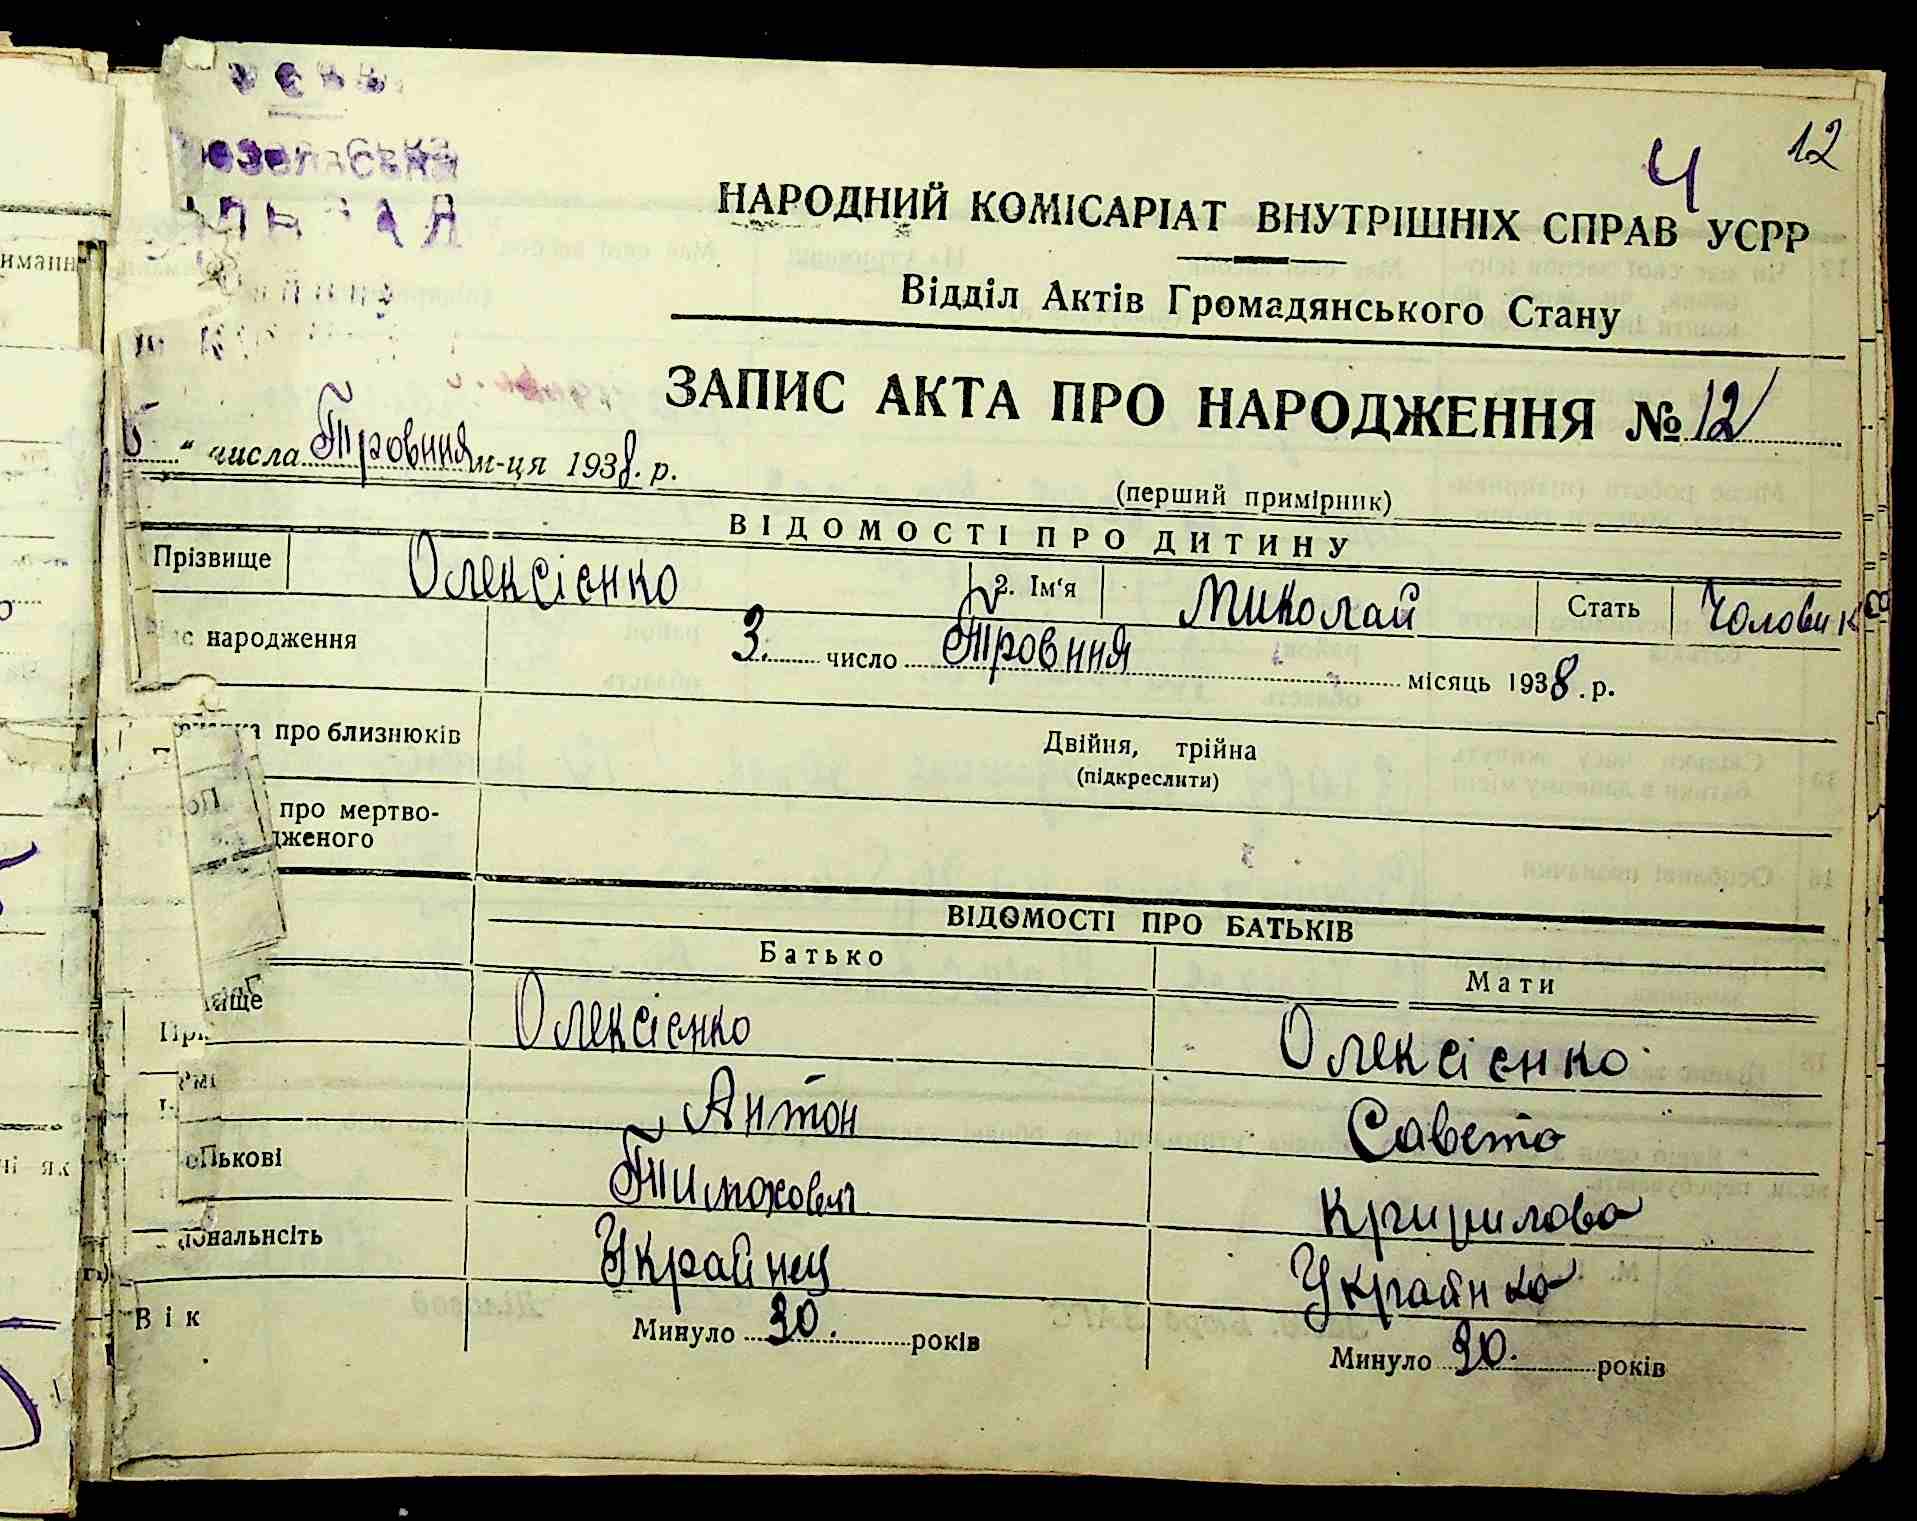 У С Р Р.
12
Ч
НАРОДНИЙ КОМІСАРІАТ ВНУТРІШНІХ СПРАВ УСРР
Відділ Актів Громадянського Стану
ЗАПИС АКТА ПРО НАРОДЖЕННЯ № 12
5 " числа Тровння м-ця 1938. р.
(перший примірник)
ВІДОМОСТІ ПРО ДИТИНУ
Прізвище Олексієнко 2. Ім'я Миколай Стать Чоловик
народження 3. число Тровння місяць 1938. р.
про близнюків Двійня, трійна
(підкреслити)
про мертво-
дженого
ВІДОМОСТІ ПРО БАТЬКІВ
Батько Мати
Олексієнко Олексієнко
Антон Савета
Тимохович Кририлова
Украйнец Украйнка
Вік Минуло 30. років Минуло 30. років